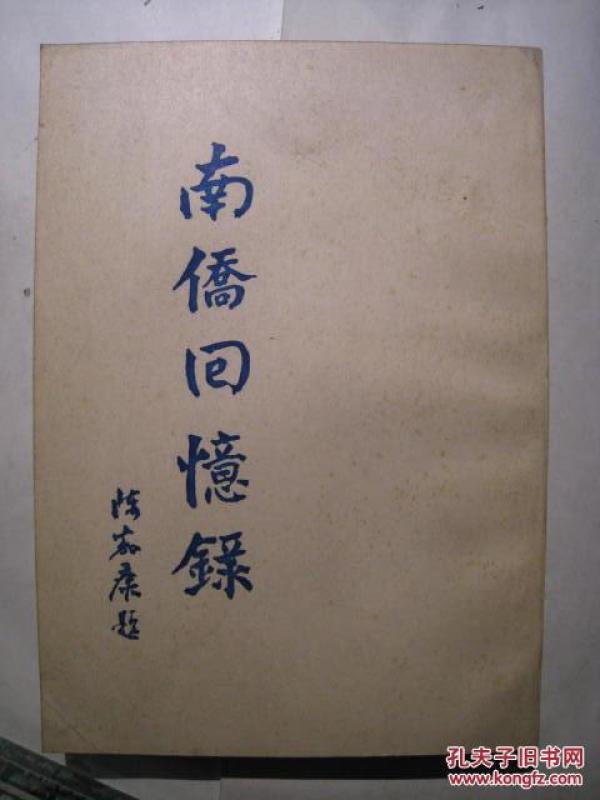 南僑回憶錄
陳嘉庚題
孔夫子旧书网
www.kongfz.com